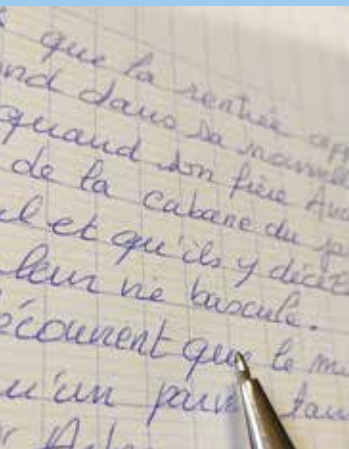 que la rentrée app
ond dans sa nouvell
quand son frère Au
de la cabane du ja
al et qu'ils y décèl
leur vie bascule.
écouvrent que le m
qu'un pain tau